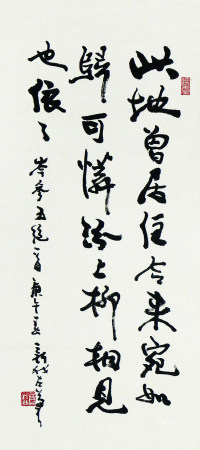 此地曾居住今来宛如
歸可憐汾上柳相見
也依々
岑参五絕一首庚午夏